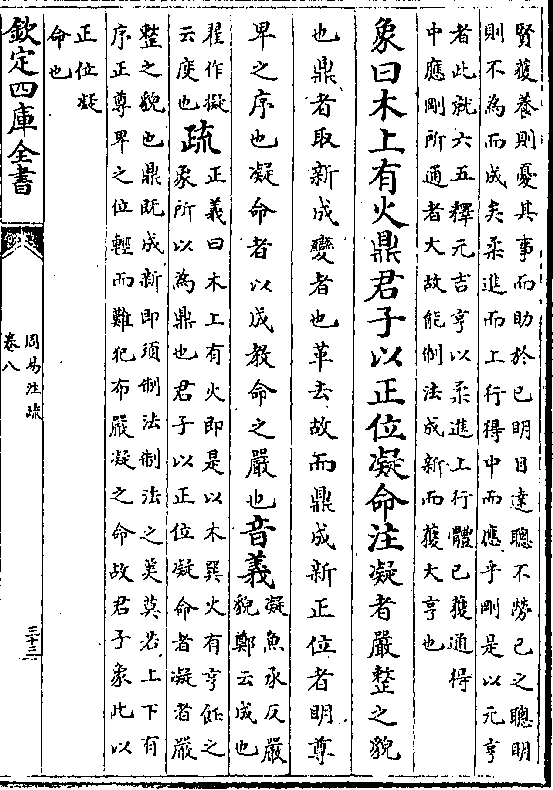 賢獲養則憂其事而助於己明目達聰不勞己之聰明
則不為而成矣柔進而上行得中而應乎剛是以元亨
者此就六五釋元吉亨以柔進上行體已獲通得
中應剛所通者大故能制法成新而獲大亨也
象曰木上有火鼎君子以正位凝命注凝者嚴整之貌
也鼎者取新成變者也革去故而鼎成新正位者明尊
卑之序也凝命者以成教命之嚴也音義凝魚承反嚴
貌鄭云成也
翟作擬
云度也疏正義曰木上有火即是以木巽火有亨飪之
象所以為鼎也君子以正位凝命者凝者嚴
整之貌也鼎既成新即須制法制法之美莫若上下有
序正尊卑之位輕而難犯布嚴凝之命故君子象此以
正位凝
命也
欽定四庫全書
周易注疏
卷八
三十三